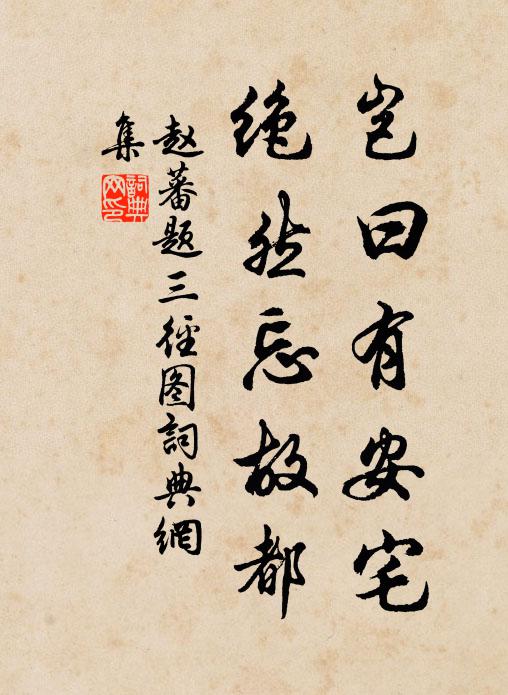 岂曰有安宅
绝然忘故都
赵蕃题三径图词典网
集
詞典
网印